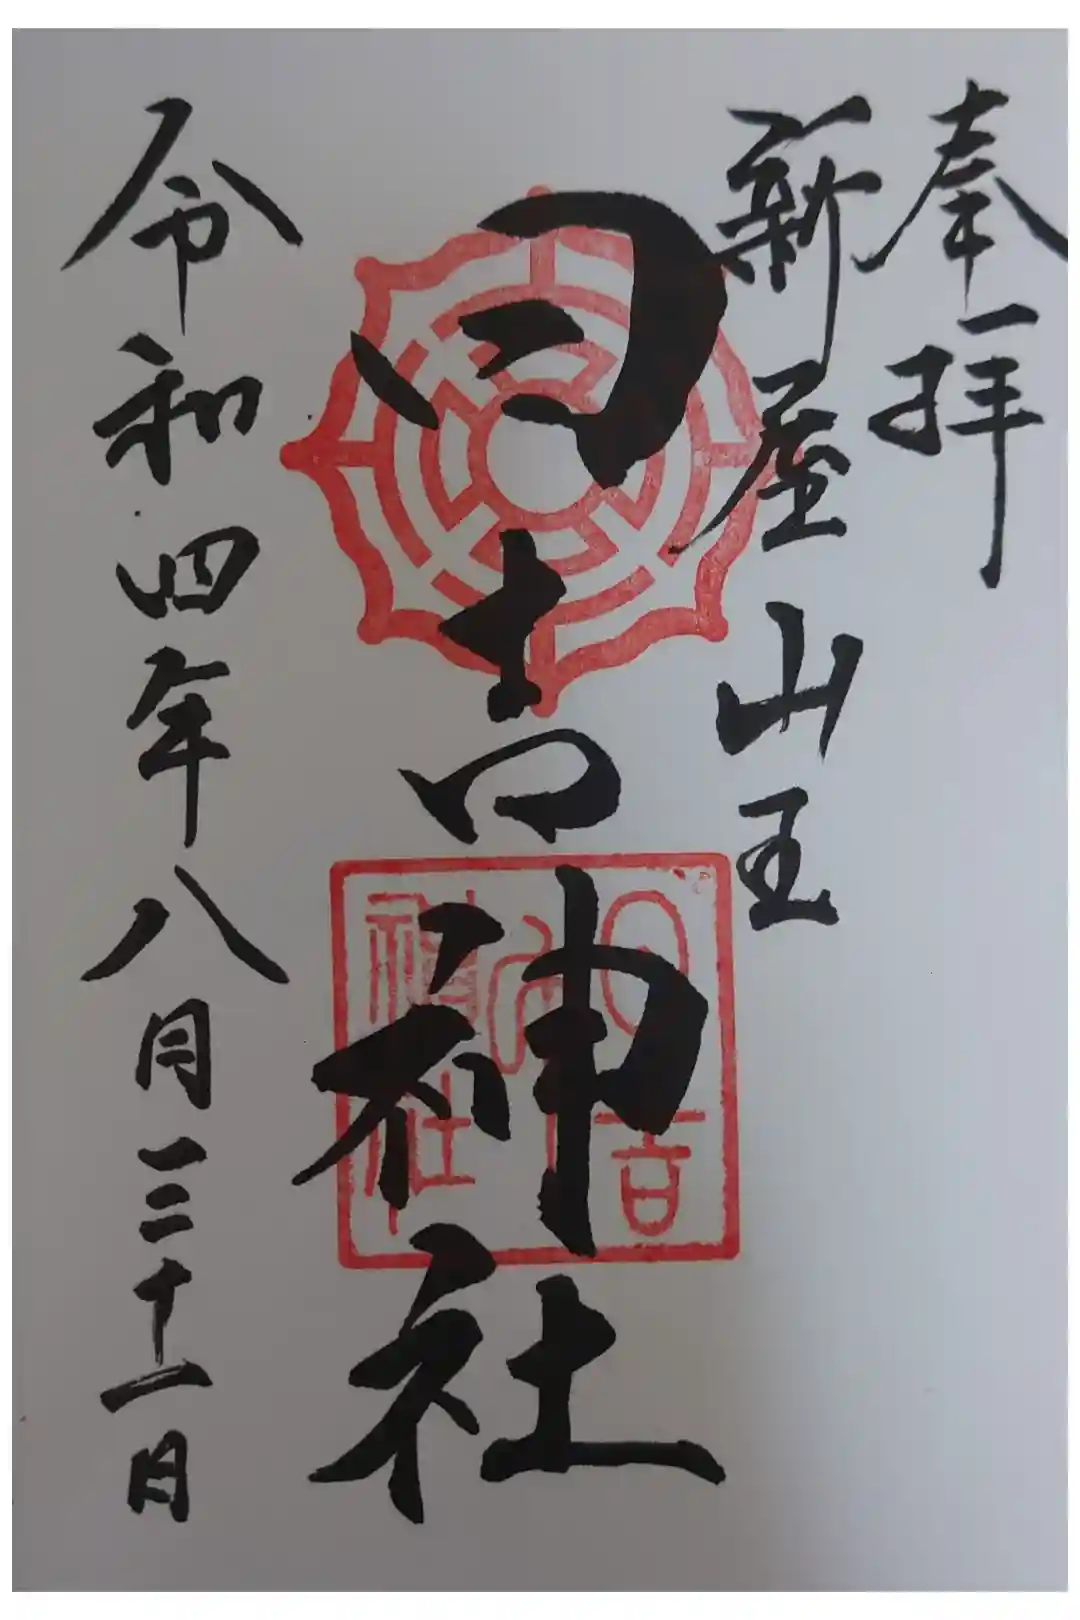 奉拝
新屋山王
日吉神社
日吉神社
令和四年八月三十一日